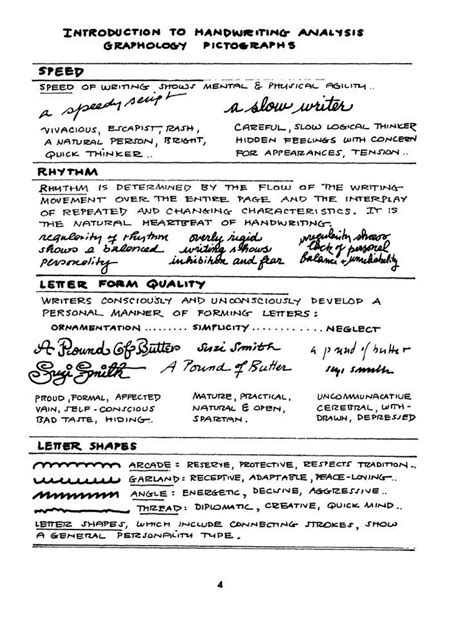 INTRODUCTION TO HANDWRITING ANALYSIS
GRAPHOLOGY PICTOGRAPHS
SPEED
SPEED OF WRITING SHOWS MENTAL & PHYSICAL AGILITY..
a speedy script
a slow writer
VIVACIOUS, ESCAPIST, RASH,
A NATURAL PERSON, BRIGHT,
QUICK THINKER..
CAREFUL, SLOW LOGICAL THINKER
HIDDEN FEELINGS WITH CONCERN
FOR APPEARANCES, TENSION..
RHYTHM
RHYTHM IS DETERMINED BY THE FLOW OF THE WRITING-
MOVEMENT OVER THE ENTIRE PAGE AND THE INTERPLAY
OF REPEATED AND CHANGING CHARACTERISTICS. IT IS
THE NATURAL HEARTBEAT OF HANDWRITING.
regularity of rhythm
shows a balanced
personality
overly rigid
writing shows
inhibition and fear
irregularity shows
lack of personal
balance & unreliability
LETTER FORM QUALITY
WRITERS CONSCIOUSLY AND UNCONSCIOUSLY DEVELOP A
PERSONAL MANNER OF FORMING LETTERS:
ORNAMENTATION ......... SIMPLICITY ............ NEGLECT
A Pound Of Butter
Suzi Smith
Suzi Smith
A Pound of Butter
a pound of butter
suzi smith
PROUD, FORMAL, AFFECTED
VAIN, SELF-CONSCIOUS
BAD TASTE, HIDING..
MATURE, PRACTICAL,
NATURAL & OPEN,
SPARTAN.
UNCOMMUNACATIVE
CEREBRAL, WITH-
DRAWN, DEPRESSED
LETTER SHAPES
ARCADE: RESERVE, PROTECTIVE, RESPECTS TRADITION..
GARLAND: RECEPTIVE, ADAPTABLE, PEACE-LOVING..
ANGLE: ENERGETIC, DECISIVE, AGGRESSIVE..
THREAD: DIPLOMATIC, CREATIVE, QUICK MIND..
LETTER SHAPES, WHICH INCLUDE CONNECTING STROKES, SHOW
A GENERAL PERSONALITY TYPE.
4